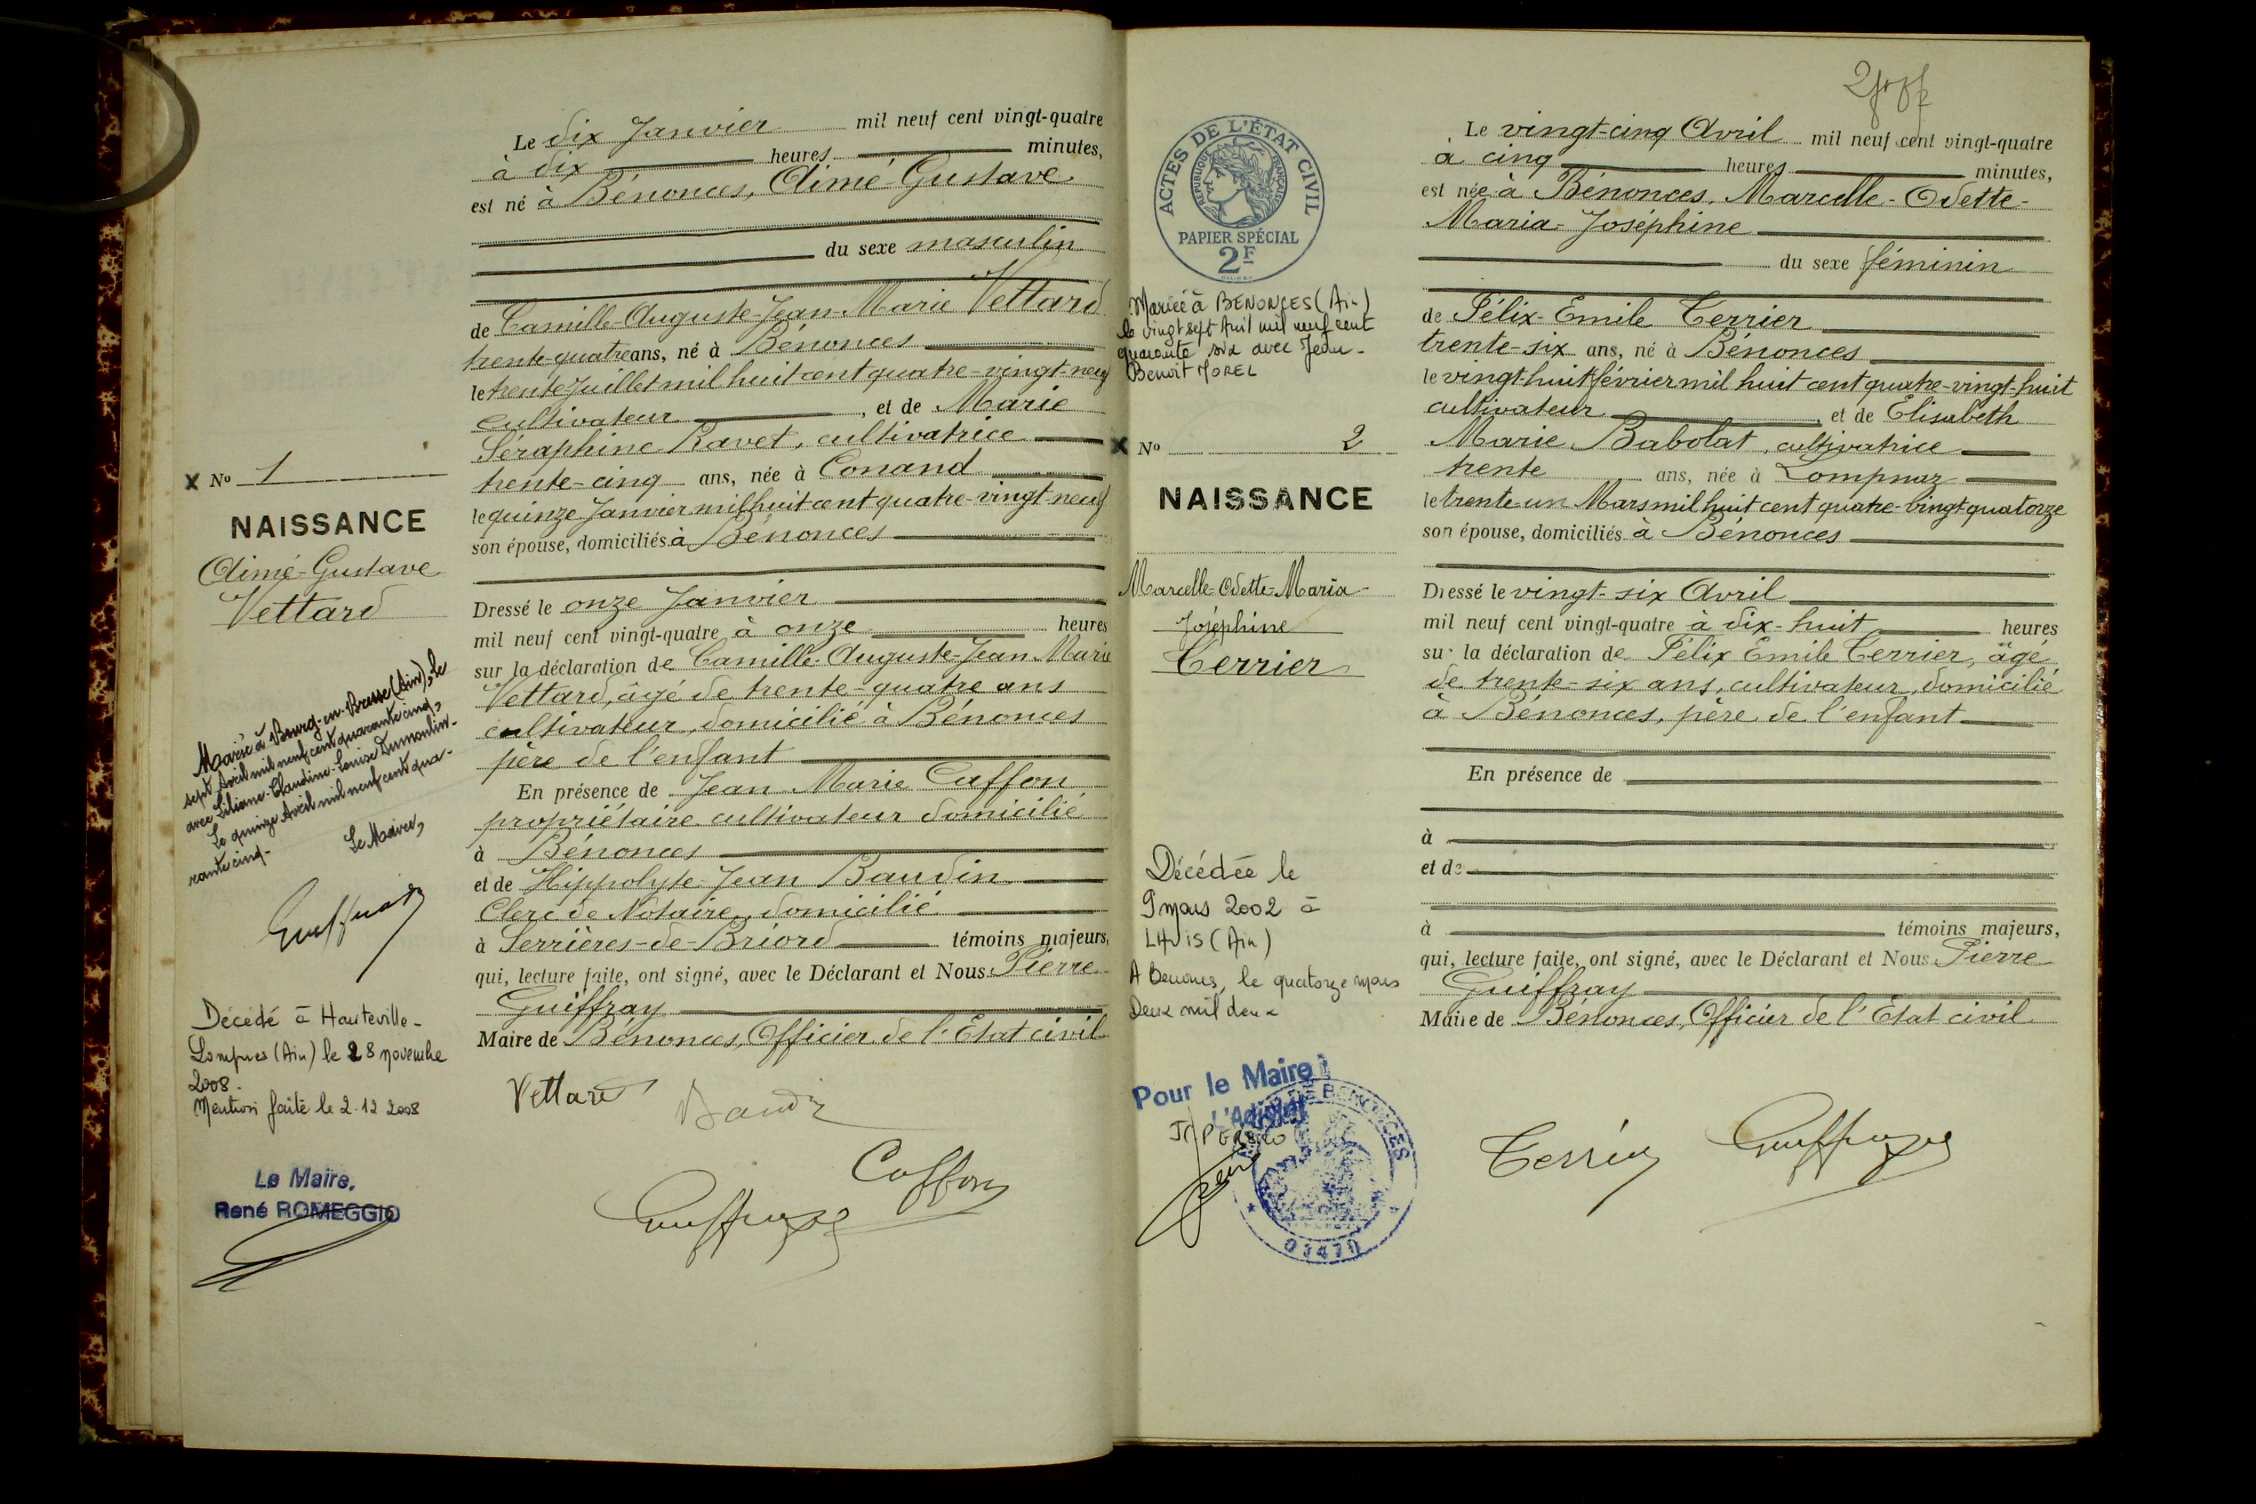 Le dix Janvier mil neuf cent vingt-quatre
à dix heures minutes,
est né à Bénonces, Aimé-Gustave
du sexe masculin
de Camille-Auguste-Jean-Marie Vettard
trente-quatre ans, né à Bénonces
le trente Juillet mil huit cent quatre-vingt-neuf
cultivateur, et de Marie
Séraphine Ravet, cultivatrice
trente-cinq ans, née à Conand
le quinze Janvier mil huit cent quatre-vingt-neuf
son épouse, domiciliés à Bénonces
Dressé le onze Janvier
mil neuf cent vingt-quatre à onze heures
sur la déclaration de Camille-Auguste-Jean-Marie
Vettard, âgé de trente-quatre ans
cultivateur, domicilié à Bénonces
père de l'enfant
En présence de Jean Marie Cuffon
propriétaire cultivateur domicilié
à Bénonces
et de Hippolyte-Jean Baudin
Clerc de Notaire, domicilié
à Serrières-de-Briord témoins majeurs,
qui, lecture faite, ont signé, avec le Déclarant et Nous Pierre
Guiffray
Maire de Bénonces, Officier de l'Etat civil
Vettard
Baudin
Cuffon
X No 1
NAISSANCE
Aimé-Gustave
Vettard
Marié à Bourg-en-Bresse (Ain), le
sept Avril mil neuf cent quarante cinq,
avec Liliane-Claudine-Louise Dumoulin.
Le quinze Avril mil neuf cent qua-
rante cinq-
Le Maire,
Décédé à Hauteville-
Lompnes (Ain) le 28 novembre
2008.
Mention faite le 2.12 2008
Le Maire,
René ROMEGGIO
ACTES DE L'ÉTAT CIVIL
RÉPUBLIQUE FRANÇAISE
PAPIER SPÉCIAL
2F
Mariée à BENONCES (Ain)
le vingt sept Avril mil neuf cent
quarante six avec Jean-
Benoit MOREL
X No 2
NAISSANCE
Marcelle-Odette-Maria-
Joséphine
Terrier
Décédée le
9 mars 2002 à
LHUIS (Ain)
A Benonces, le quatorze mars
Deux mil deux
Pour le Maire
L'Adjoint
DE BENONCES
Le vingt-cinq Avril mil neuf cent vingt-quatre
à cinq heures minutes,
est née à Bénonces, Marcelle-Odette-
Maria-Joséphine
du sexe féminin
de Félix-Emile Terrier
trente-six ans, né à Bénonces
le vingt-huit février mil huit cent quatre-vingt-huit
cultivateur et de Elisabeth
Marie Babolat, cultivatrice
trente ans, née à Lompnaz
le trente un Mars mil huit cent quatre-vingt quatorze
son épouse, domiciliés à Bénonces
Dressé le vingt-six Avril
mil neuf cent vingt-quatre à dix-huit heures
sur la déclaration de Félix Emile Terrier, âgé
de trente-six ans, cultivateur, domicilié
à Bénonces, père de l'enfant
En présence de
à
et de
à témoins majeurs,
qui, lecture faite, ont signé, avec le Déclarant et Nous Pierre
Guiffray
Maire de Bénonces, Officier de l'Etat civil
Terrier